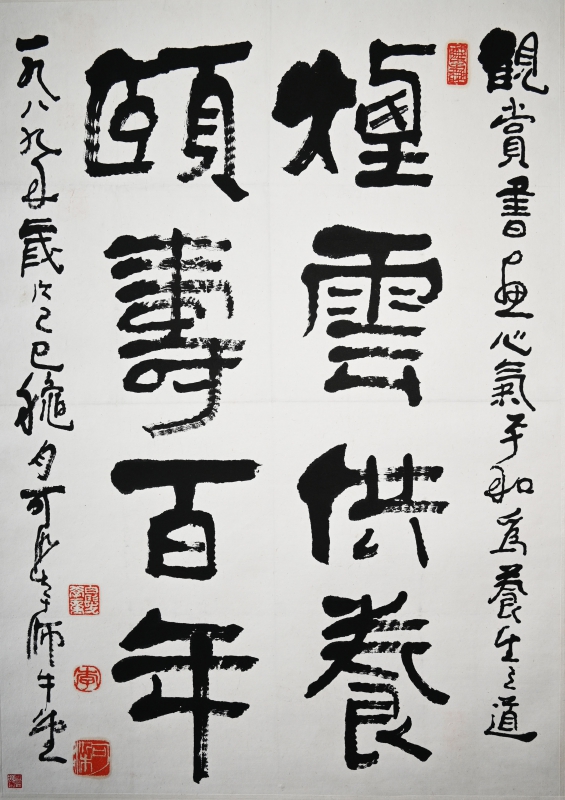 觀賞書画心氣平和為養生之道
煙雲供養
頤壽百年
一九八九年歲次己巳穐月可染於師牛堂
李
可染